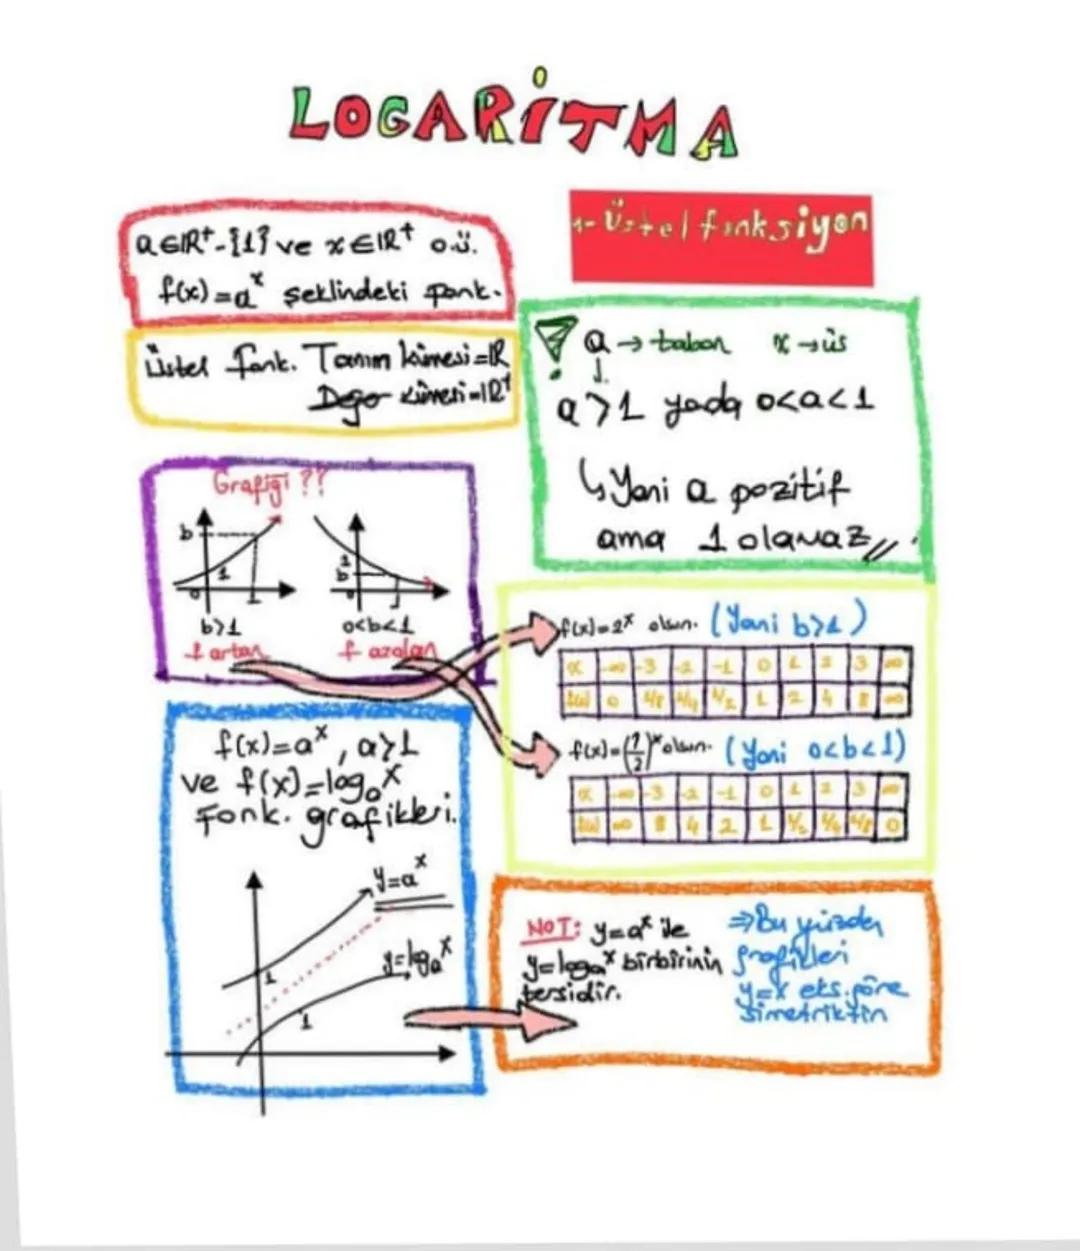 LOGARİTMA
a∈IR⁺-{1} ve x∈IR⁺ o.ü.
f(x)=aˣ şeklindeki fonk.
1- Üstel fonksiyon
Üstel fonk. Tanım kümesi=IR
Değer kümesi=IR⁺
a → taban x → üs
↓
a>1 yada 0<a<1
↳ Yani a pozitif
ama 1 olamaz //.
Grafiği ??
b
1
0
1
b>1
f artan
1
b
0
1
0<b<1
f azalan
f(x)=2ˣ olsun. (Yani b>1)
x -∞ -3 -2 -1 0 1 2 3 ∞
f(x) 0 1/8 1/4 1/2 1 2 4 8 ∞
f(x)=(1/2)ˣ olsun. (Yani 0<b<1)
x -∞ -3 -2 -1 0 1 2 3 ∞
f(x) ∞ 8 4 2 1 1/2 1/4 1/8 0
f(x)=aˣ, a>1
ve f(x)=logₐx
Fonk. grafikleri.
y=aˣ
y=logₐx
1
1
NOT: y=aˣ ile
y=logₐx birbirinin
tersidir.
⇒Bu yüzden
grafikleri
y=x eks. göre
simetriktir